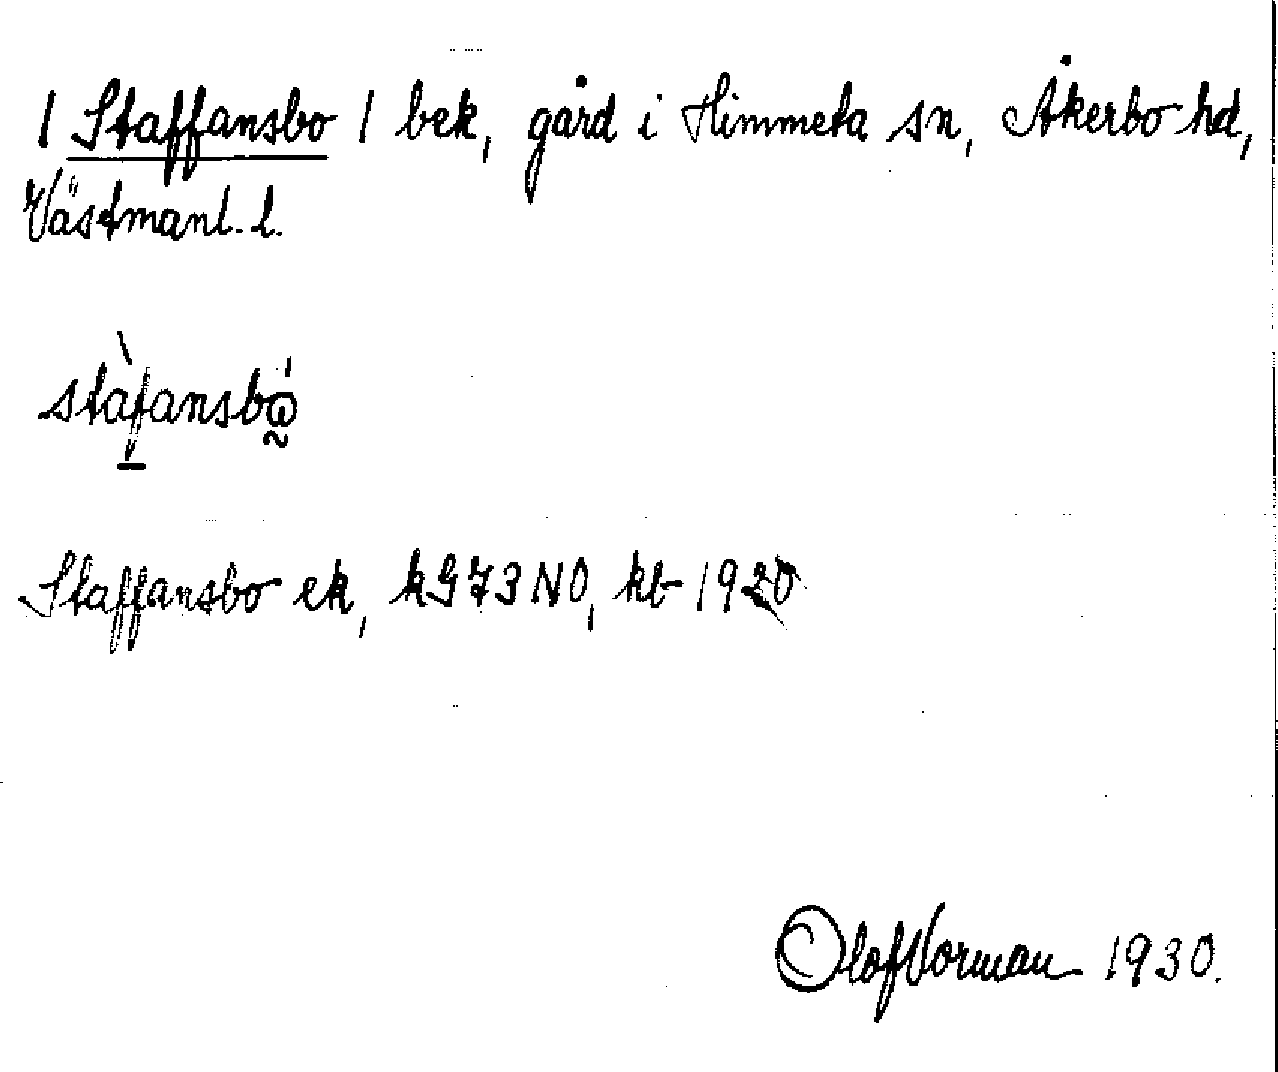 / Staffansbo / bek, gård i Himmeta sn, Åkerbo hd,
Västmanl. l.
stàfansbώ̰
Staffansbo ek, kG73NO, kb 1920
Olof Norman 1930.